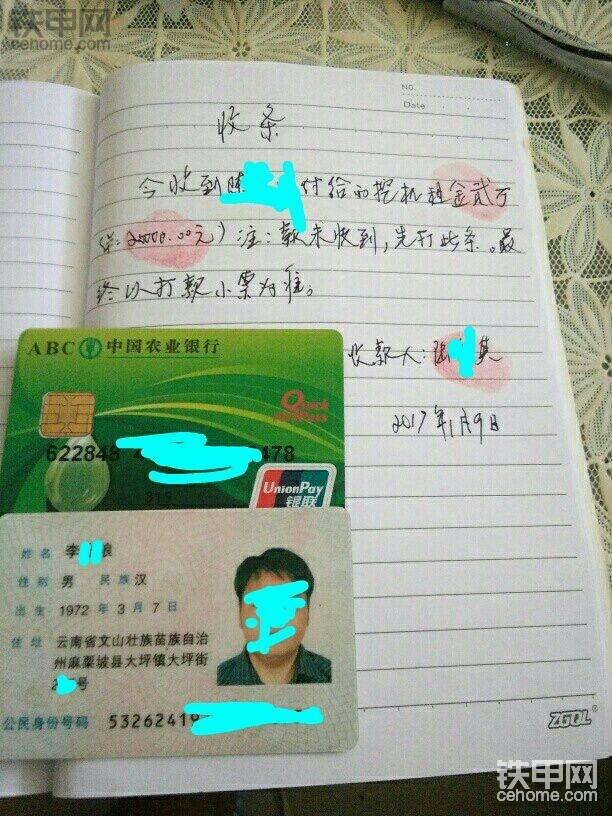 铁甲网
cehome.com
NO.
Date
收条
今收到陈 付给的挖机租金贰万
25000.00元）注：款未收到，先打此条。最
终以打款小票为准。
收款人：
2017年1月9日
ABC 中国农业银行
Quick
622848 478
315
UnionPay
银联
姓名 李 浪
性别 男 民族 汉
出生 1972 年 3 月 7 日
住址 云南省文山壮族苗族自治
州麻栗坡县大坪镇大坪街
2 号
公民身份号码 53262419
ZGQL
铁甲网
cehome.com